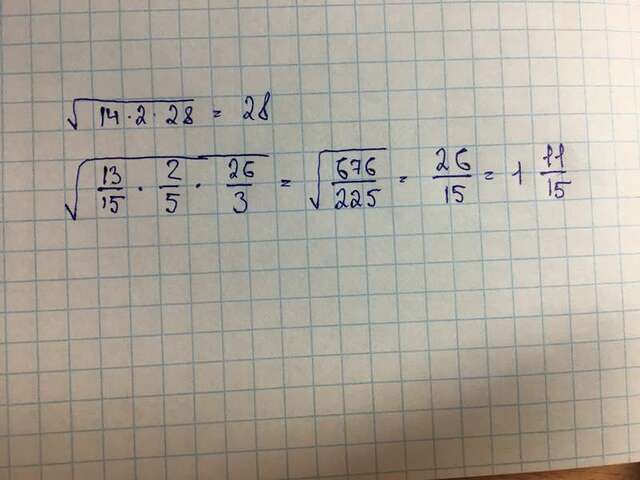 √(14·2·28) = 28
√(13/15 · 2/5 · 26/3) = √(676/225) = 26/15 = 1 11/15